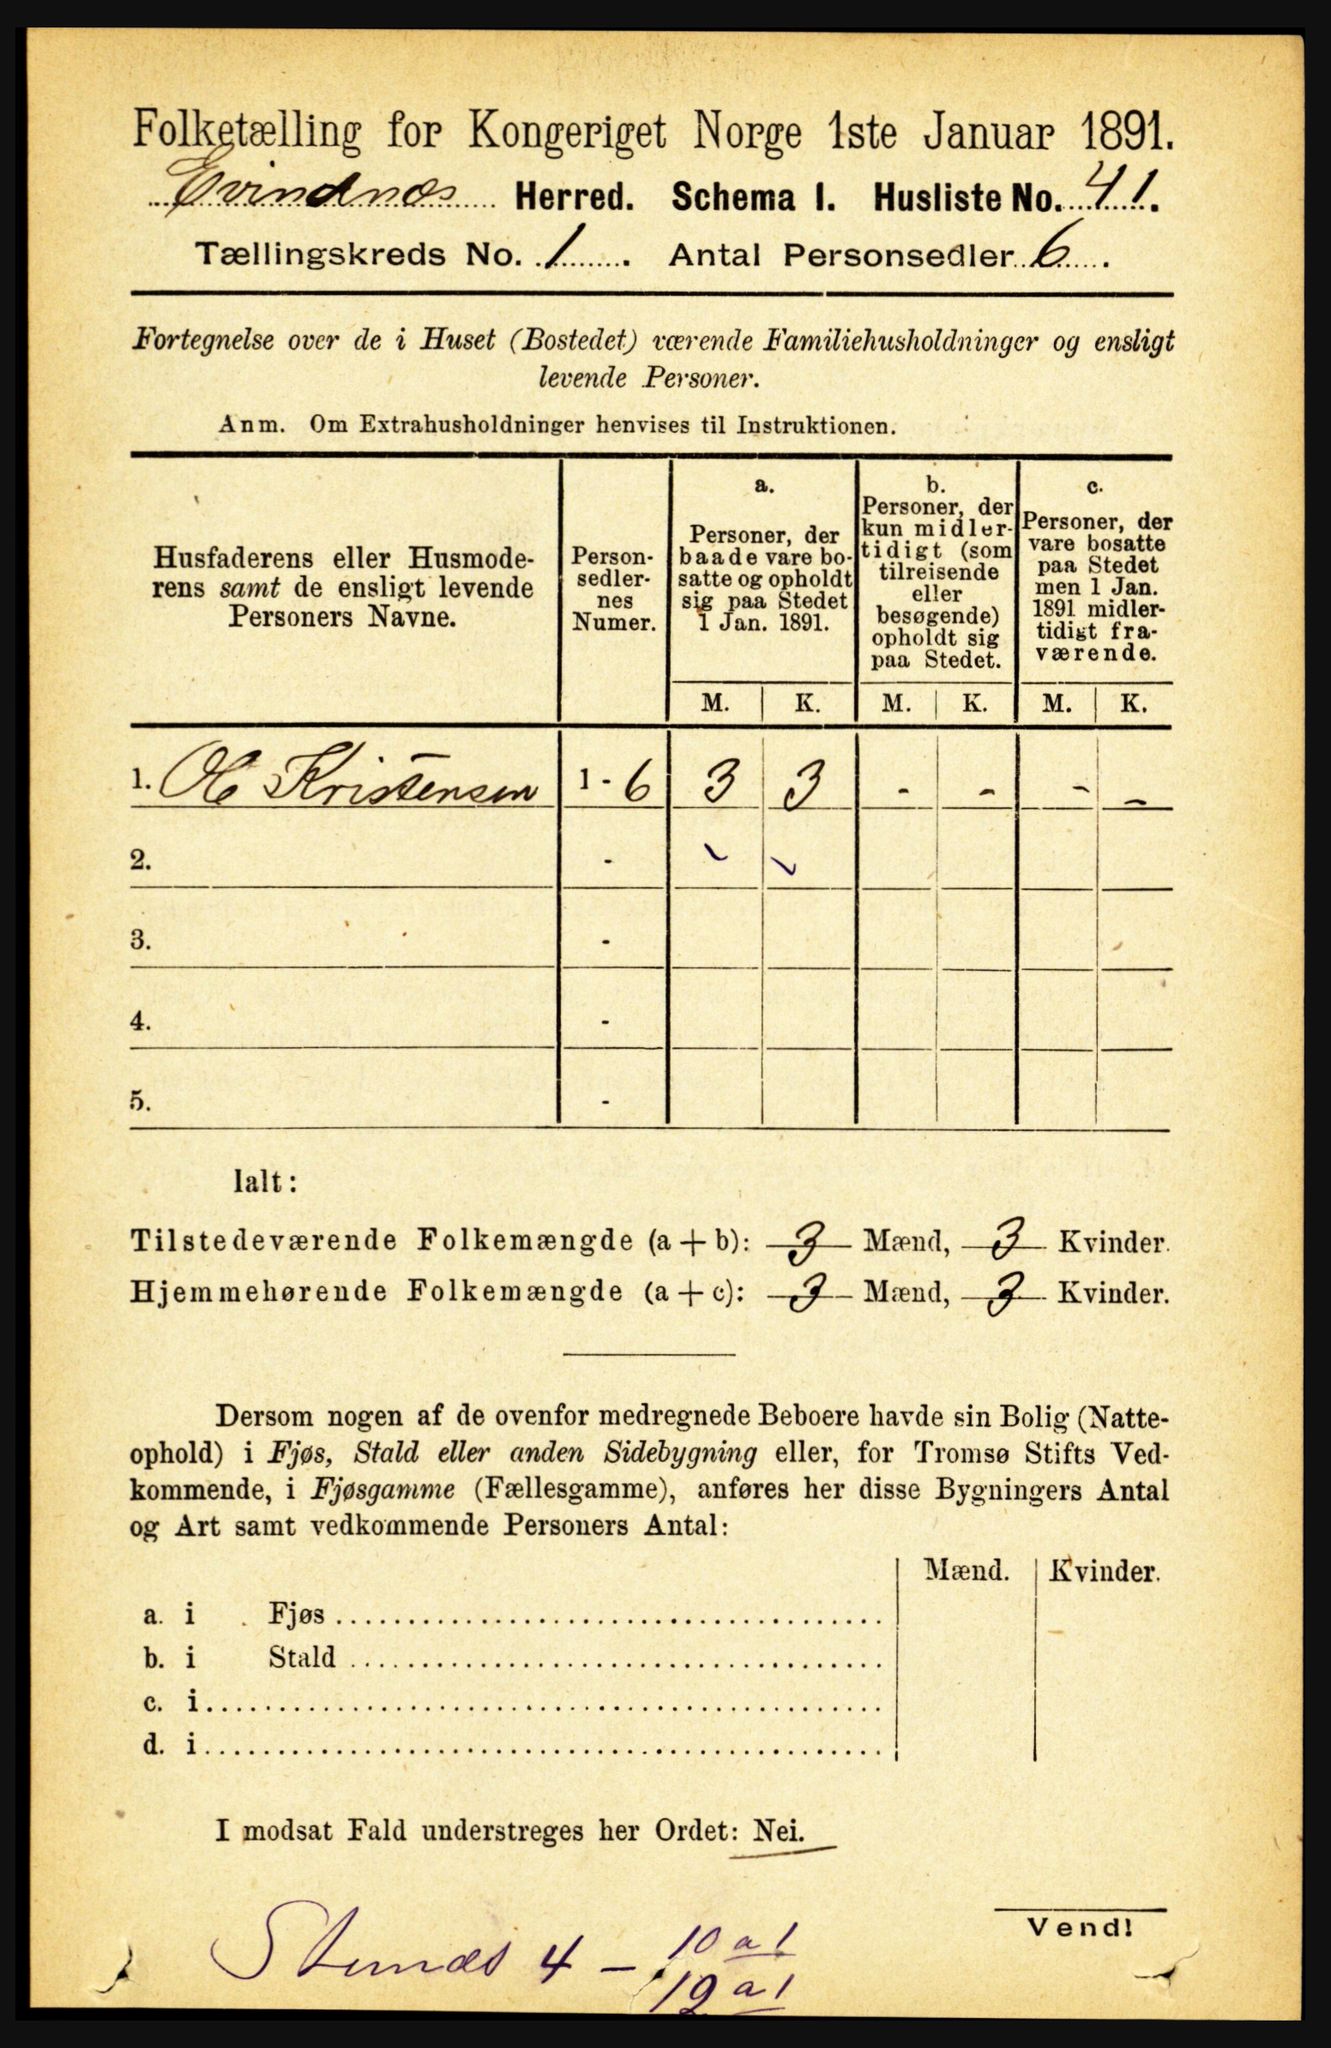 Folketælling for Kongeriget Norge 1ste Januar 1891.
Evindnæs Herred. Schema I. Husliste No. 41.
Tællingskreds No. 1. Antal Personsedler 6.
Fortegnelse over de i Huset (Bostedet) værende Familiehusholdninger og ensligt
levende Personer.
Anm. Om Extrahusholdninger henvises til Instruktionen.
Husfaderens eller Husmode-
rens samt de ensligt levende
Personers Navne.
Person-
sedler-
nes
Numer.
a.
Personer, der
baade vare bo-
satte og opholdt
sig paa Stedet
1 Jan. 1891.
b.
Personer, der
kun midler-
tidigt (som
tilreisende
eller
besøgende)
opholdt sig
paa Stedet.
c.
Personer, der
vare bosatte
paa Stedet
men 1 Jan.
1891 midler-
tidigt fra-
værende.
M. K. M. K. M. K.
1. Ole Kristensen 1 - 6 3 3 - - - -
2. -
3. -
4. -
5. -
Ialt:
Tilstedeværende Folkemængde (a + b): 3 Mænd, 3 Kvinder.
Hjemmehørende Folkemængde (a + c): 3 Mænd, 3 Kvinder.
Dersom nogen af de ovenfor medregnede Beboere havde sin Bolig (Natte-
ophold) i Fjøs, Stald eller anden Sidebygning eller, for Tromsø Stifts Ved-
kommende, i Fjøsgamme (Fællesgamme), anføres her disse Bygningers Antal
og Art samt vedkommende Personers Antal:
Mænd. Kvinder.
a. i Fjøs
b. i Stald
c. i
d. i
I modsat Fald understreges her Ordet: Nei.
Vend!
4 - 10 a 1
12 a 1